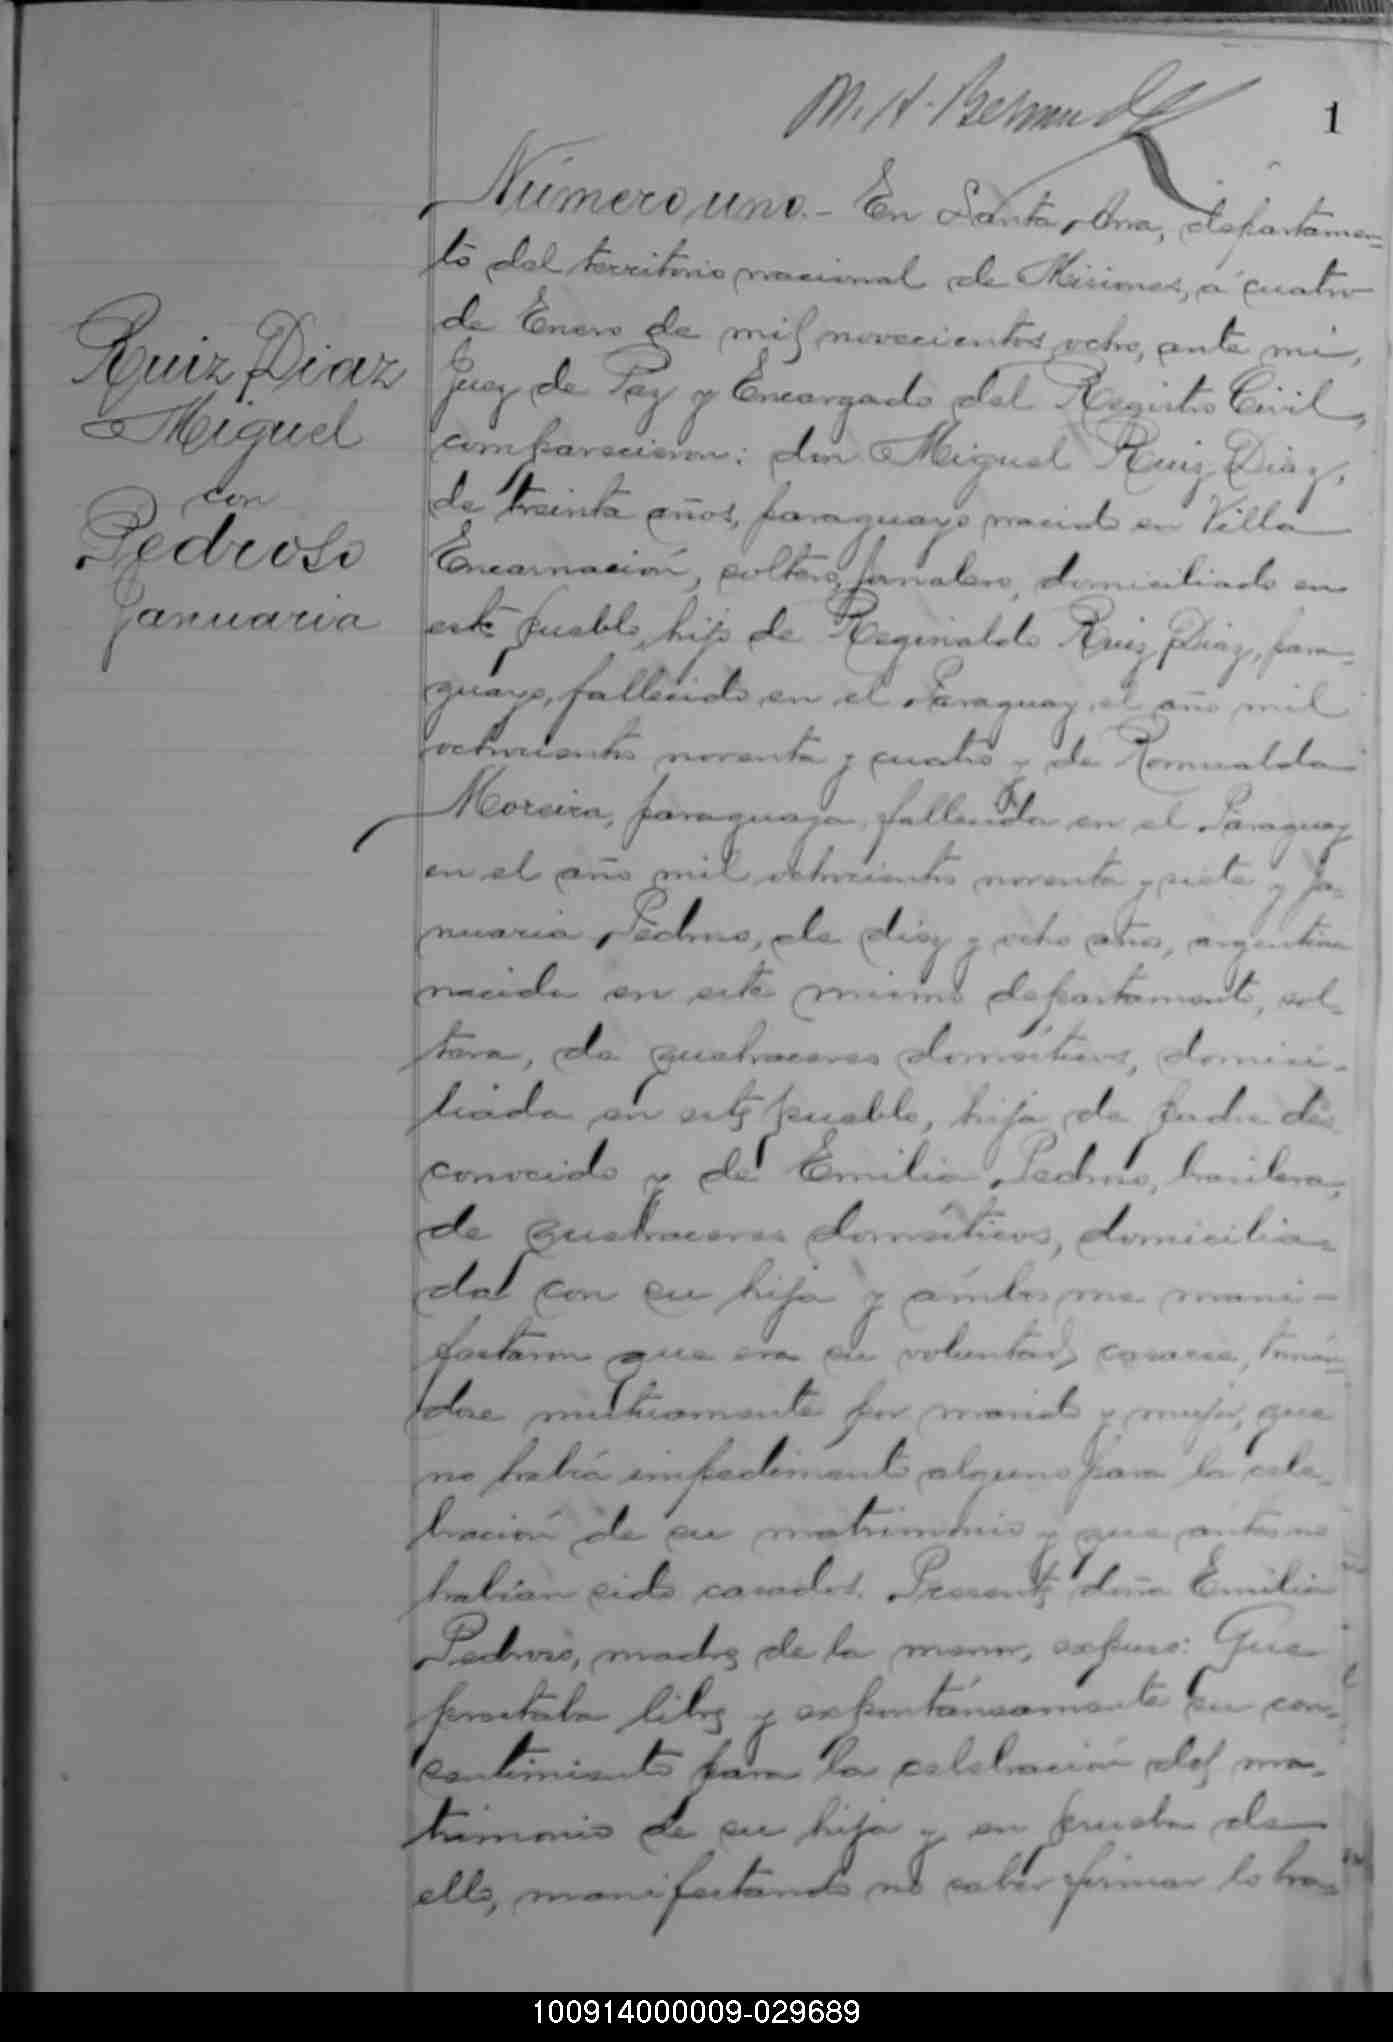 M. A. Bermudez
1
Número uno.- En Santa Ana, departamen=
to del territorio nacional de Misiones, á cuatro
de Enero de mil novecientos ocho, ante mi,
Juez de Paz y Encargado del Registro Civil,
comparecieron: don Miguel Ruiz Diaz,
de treinta años, paraguayo nacido en Villa
Encarnación, soltero, jornalero, domiciliado en
este pueblo, hijo de Reginaldo Ruiz Diaz, para=
guayo, fallecido en el Paraguay el año mil
ochocientos noventa y cuatro y de Romualda
Moreira, paraguaya, fallecida en el Paraguay
en el año mil ochocientos noventa y siete y Ja-
nuaria Pedroso, de diez y ocho años, argentina
nacida en este mismo departamento, sol-
tera, de quehaceres domésticos, domici-
liada en este pueblo, hija de padre des
conocido y de Emilia Pedroso, brasilera,
de quehaceres domésticos, domicilia=
da con su hija y ámbos me mani-
festaron que era su voluntad casarse, tomán-
dose mutuamente por marido y mujer, que
no había impedimento alguno para la cele-
bración de su matrimonio y que ántes no
habían sido casados. Presente doña Emilia
Pedroso, madre de la menor, expuso: Que
prestaba libre y espontáneamente su con-
sentimiento para la celebración del ma-
trimonio de su hija y en prueba de
ello, manifestando no saber firmar lo hace
Ruiz Diaz
Miguel
con
Pedroso
Januaria
100914000009-029689